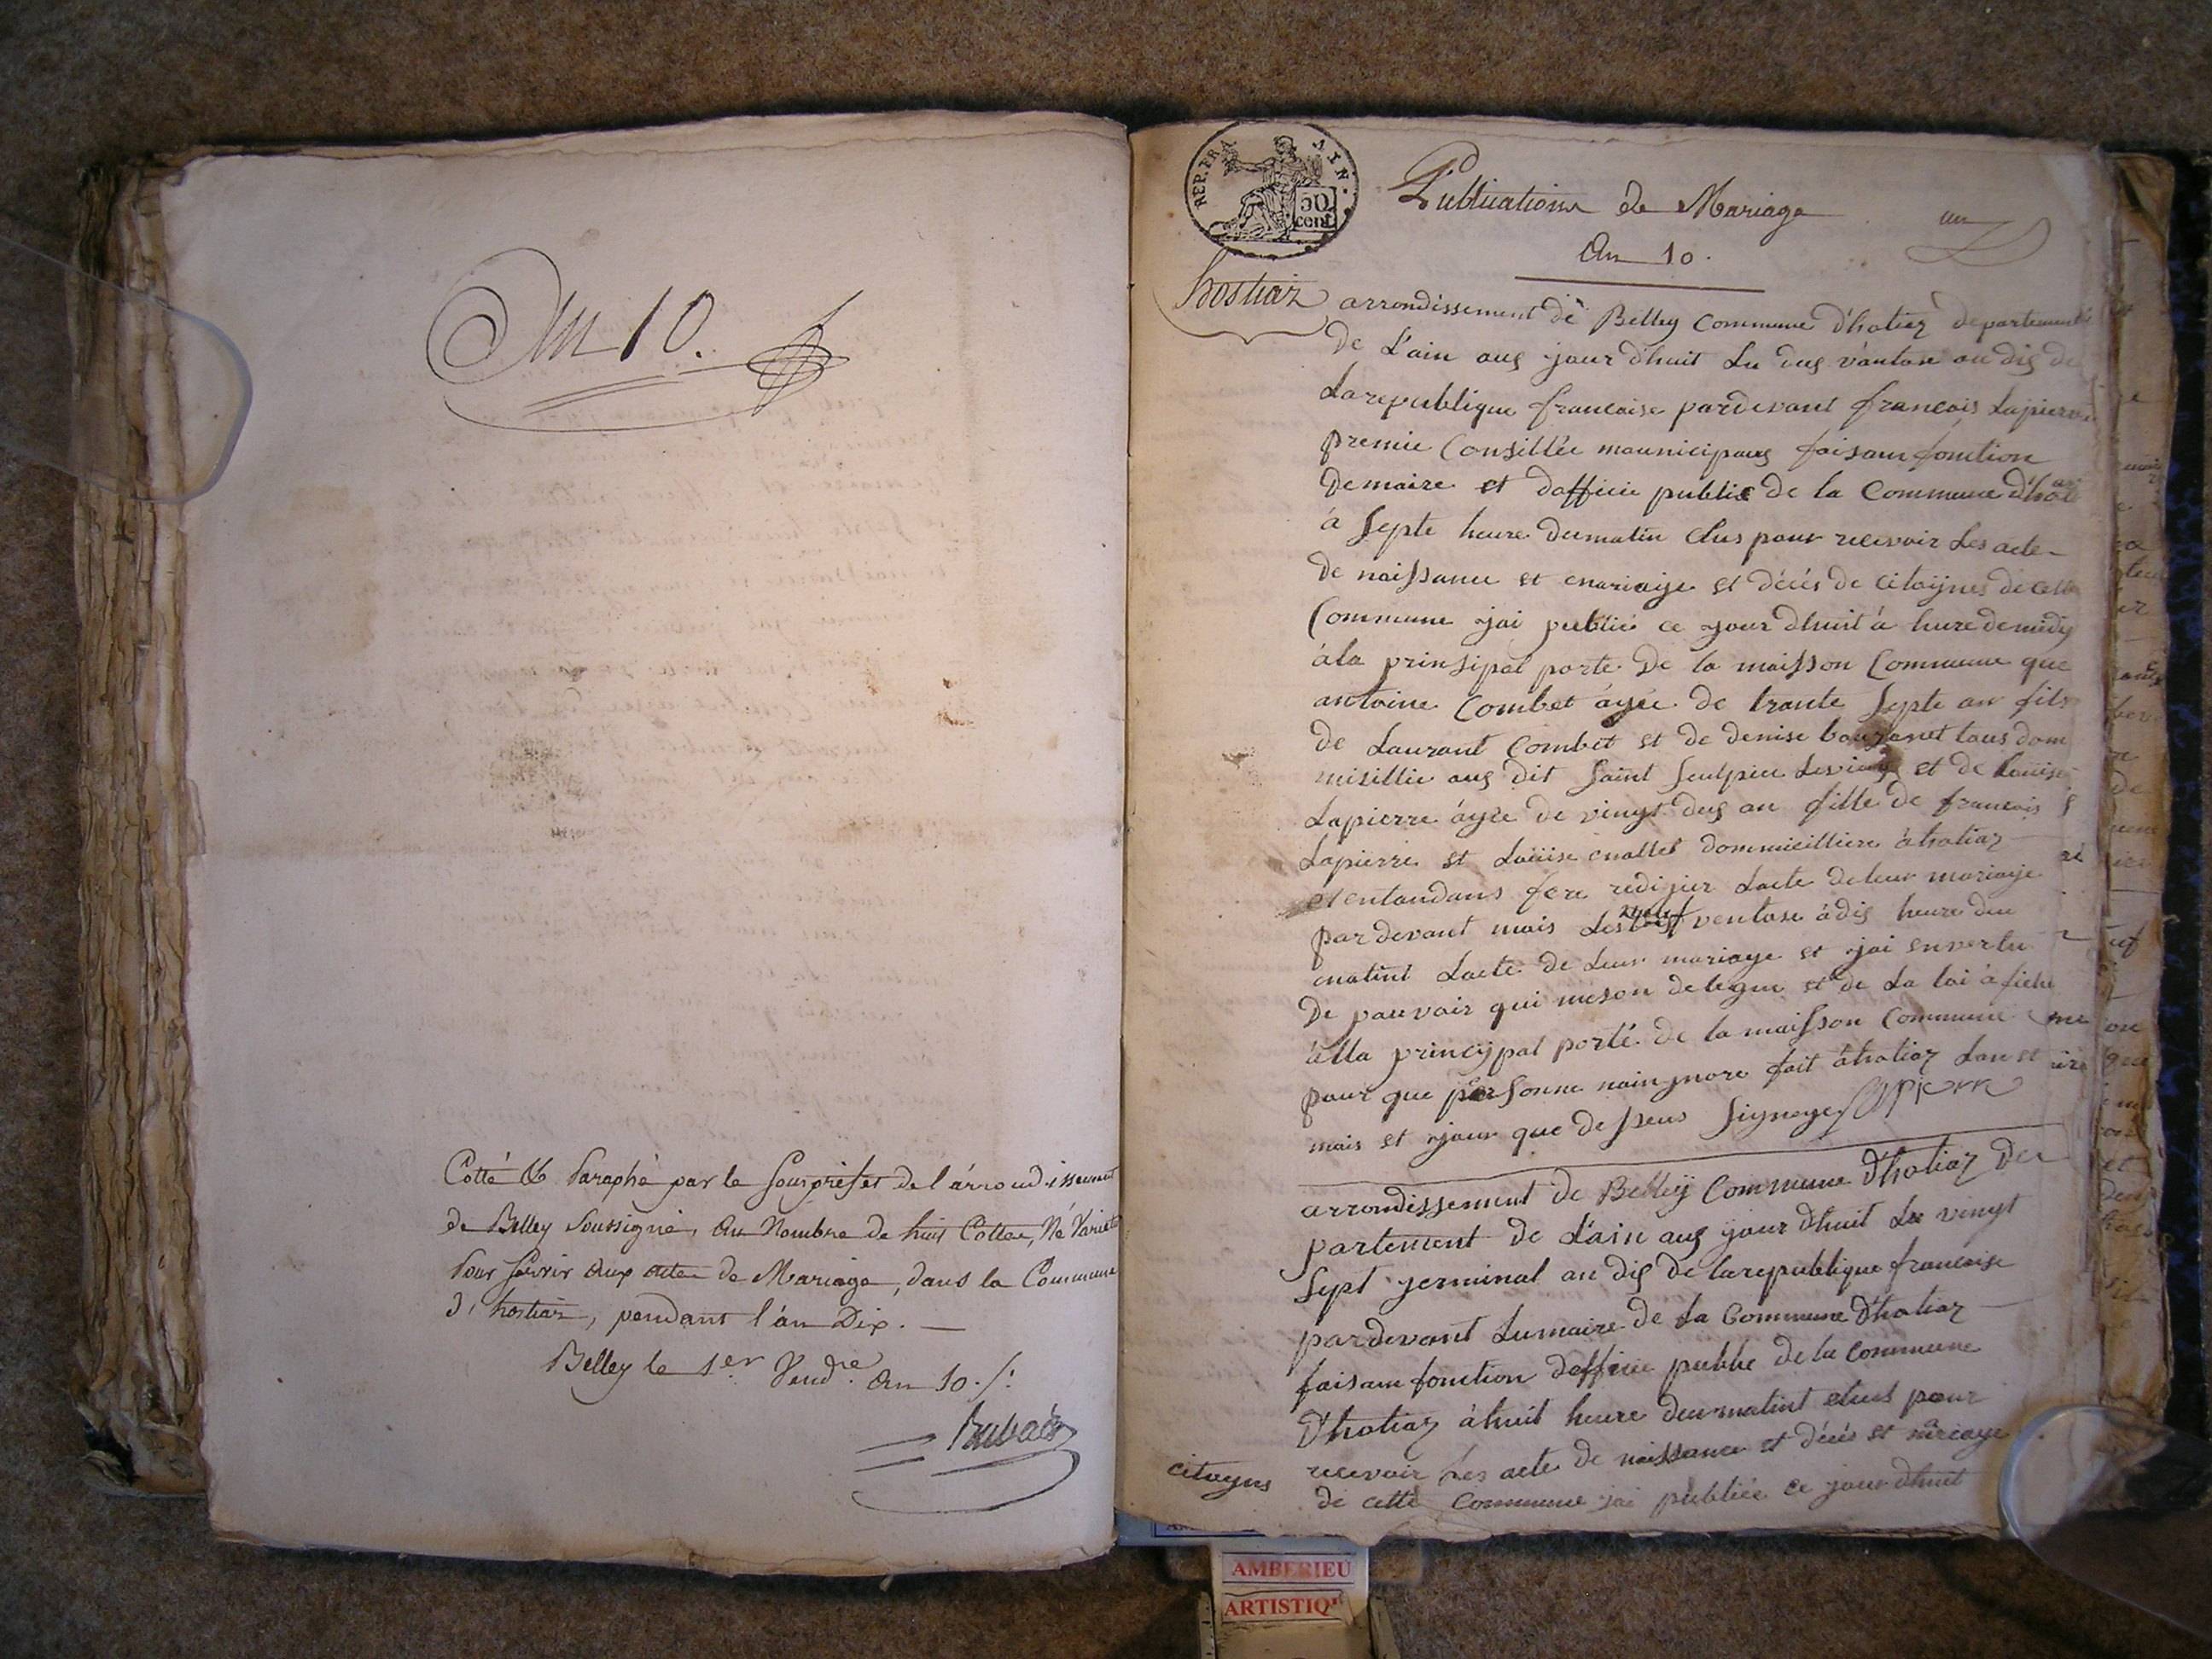 An 10.
Cotté & Paraphé par le Sousprefet de l'árrondissement
de Belley Soussigné, Au Nombre de huit Cottes, Né Variet
Pour servir Aux actes de Mariage, dans la Commune
d'hostiaz, pendant l'án Dix.
Belley le 1er Vend.re An 10 ./.
REP. FRA. AIN.
50 cent.
Publications de Mariage
An 10.
un
hostiaz
arrondissement de Belley Commune d'hotiaz departement
de L'ain aug jour d'huit Lu dug vantose an dig de
La republique francaise pardevant francois Lapierre
premie Consillée maunicipaug faisan fonction
de maire et dofficie publie de la Commune d'hoti
à Septe heure du matin Elus pour recevoir Les acte
de naissance et mariaje et décés de citoijnes de cette
Commune jai publié ce jour dhuit à hure de midy
á la prinsipal porte de la maisson Commune que
antoine Combet ágée de trante Septe an fils
de Laurant Combet et de denise tous dom
misillie aug dit Saint Sculpice et de Louise
Lapierre ágée de vingt dug an fille de francois
Lapierre et Louise mallet dommicilliere à hotiaz
et entandans fere redijier Lacte de leur mariaje
par devant mois Les ventose à dig heure du
matint Lacte de Leur mariage et jai en vertu
de pauvoir qui meson delegue et de La loi afiche
à lla principal porte de la maisson Commune
pour que personne nainjnore fait à hotiaz Lan et
mois et jour que dessus Signeye Lapierre
arrondissement de Belleÿ Commune d'hotiaz de
partement de L'ain aug jour dhuit Le vingt
Sept germinal an dig de la republique francaise
pardevant Lumaire de La Commune d'hotiaz
faisan fonction dofficie publie de la Commune
d'hotiaz à huit heure du matint elus pour
recevoir Les acte de naissance et décés et mariage
citoyens
de cette Commune jai publiée ce jour dhuit
AMBERIEU
ARTISTIQ